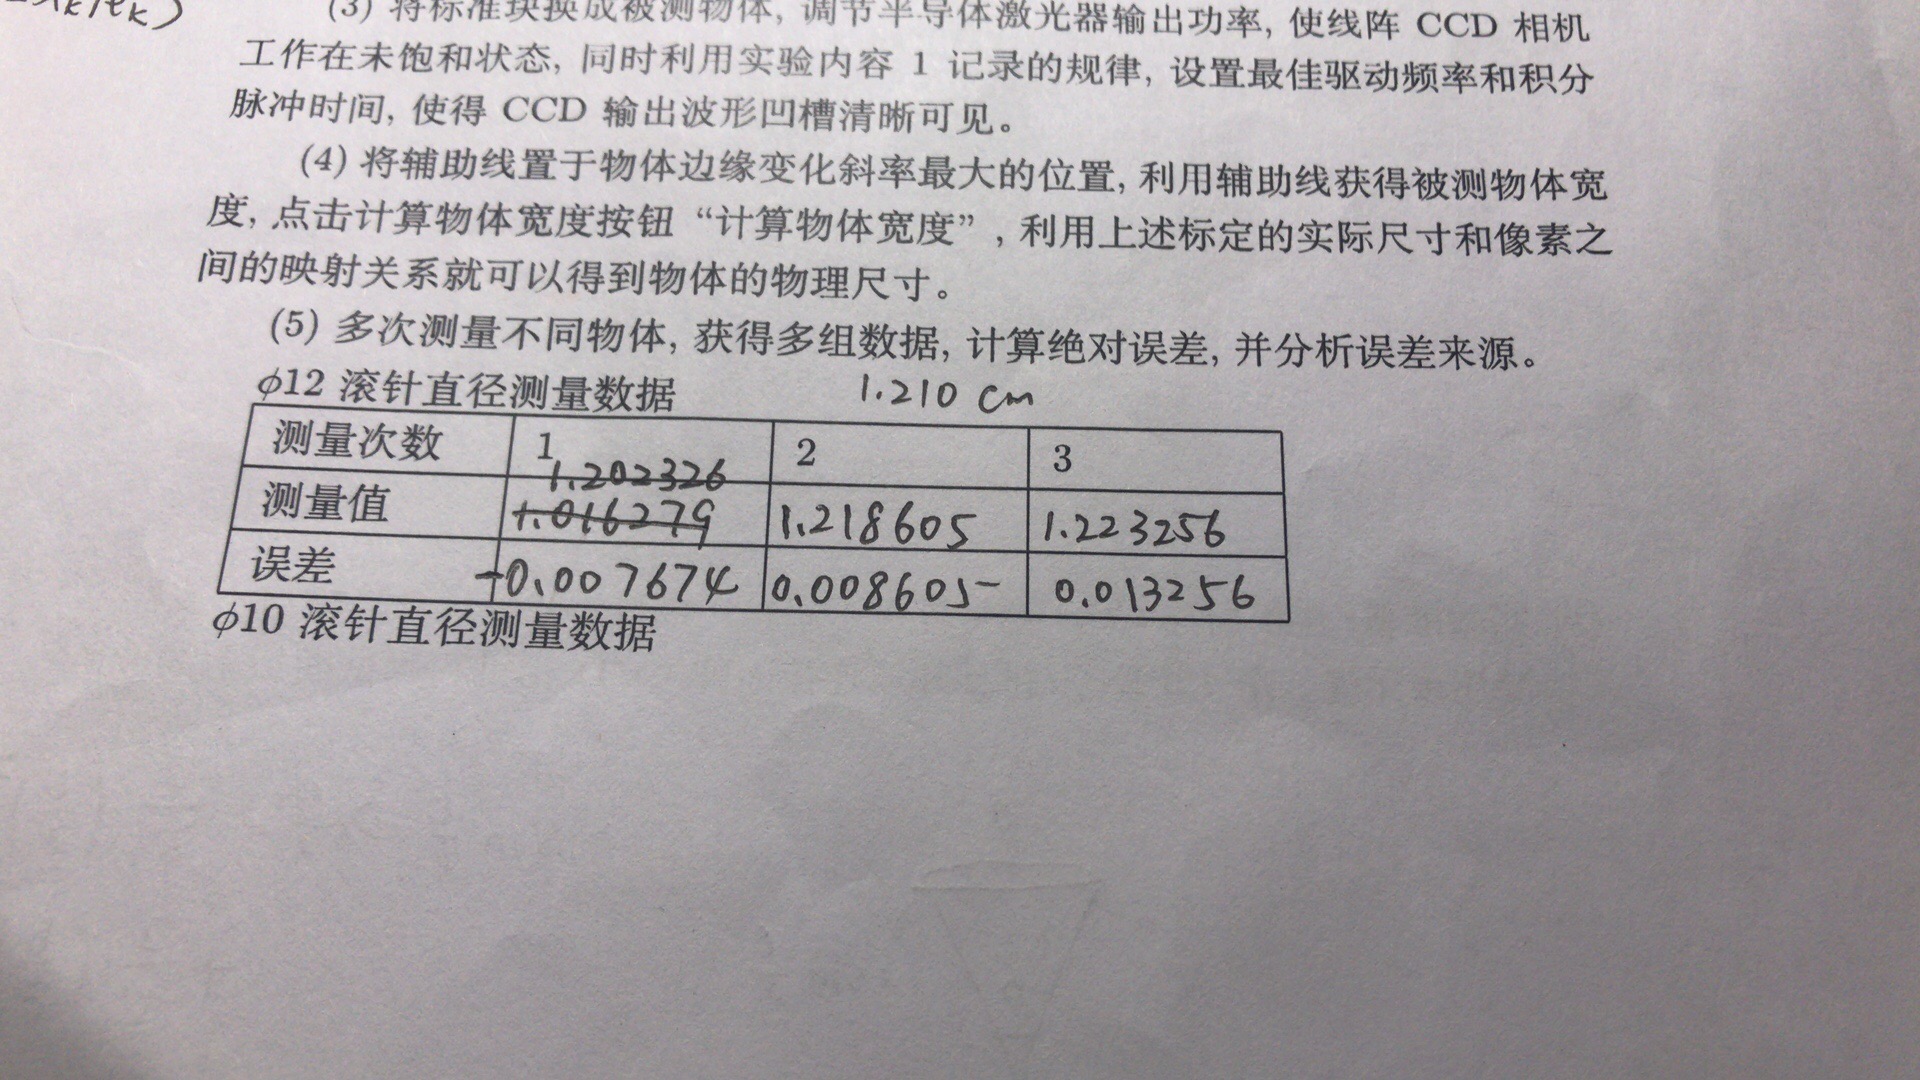 (3) 将标准块换成被测物体, 调节半导体激光器输出功率, 使线阵 CCD 相机
工作在未饱和状态, 同时利用实验内容 1 记录的规律, 设置最佳驱动频率和积分
脉冲时间, 使得 CCD 输出波形凹槽清晰可见。
(4) 将辅助线置于物体边缘变化斜率最大的位置, 利用辅助线获得被测物体宽
度, 点击计算物体宽度按钮 “计算物体宽度” , 利用上述标定的实际尺寸和像素之
间的映射关系就可以得到物体的物理尺寸。
(5) 多次测量不同物体, 获得多组数据, 计算绝对误差, 并分析误差来源。
ϕ12 滚针直径测量数据 1.210 cm
测量次数 1 2 3
1.202326
测量值 1.016279 1.218605 1.223256
误差 -0.007674 0.008605 0.013256
ϕ10 滚针直径测量数据